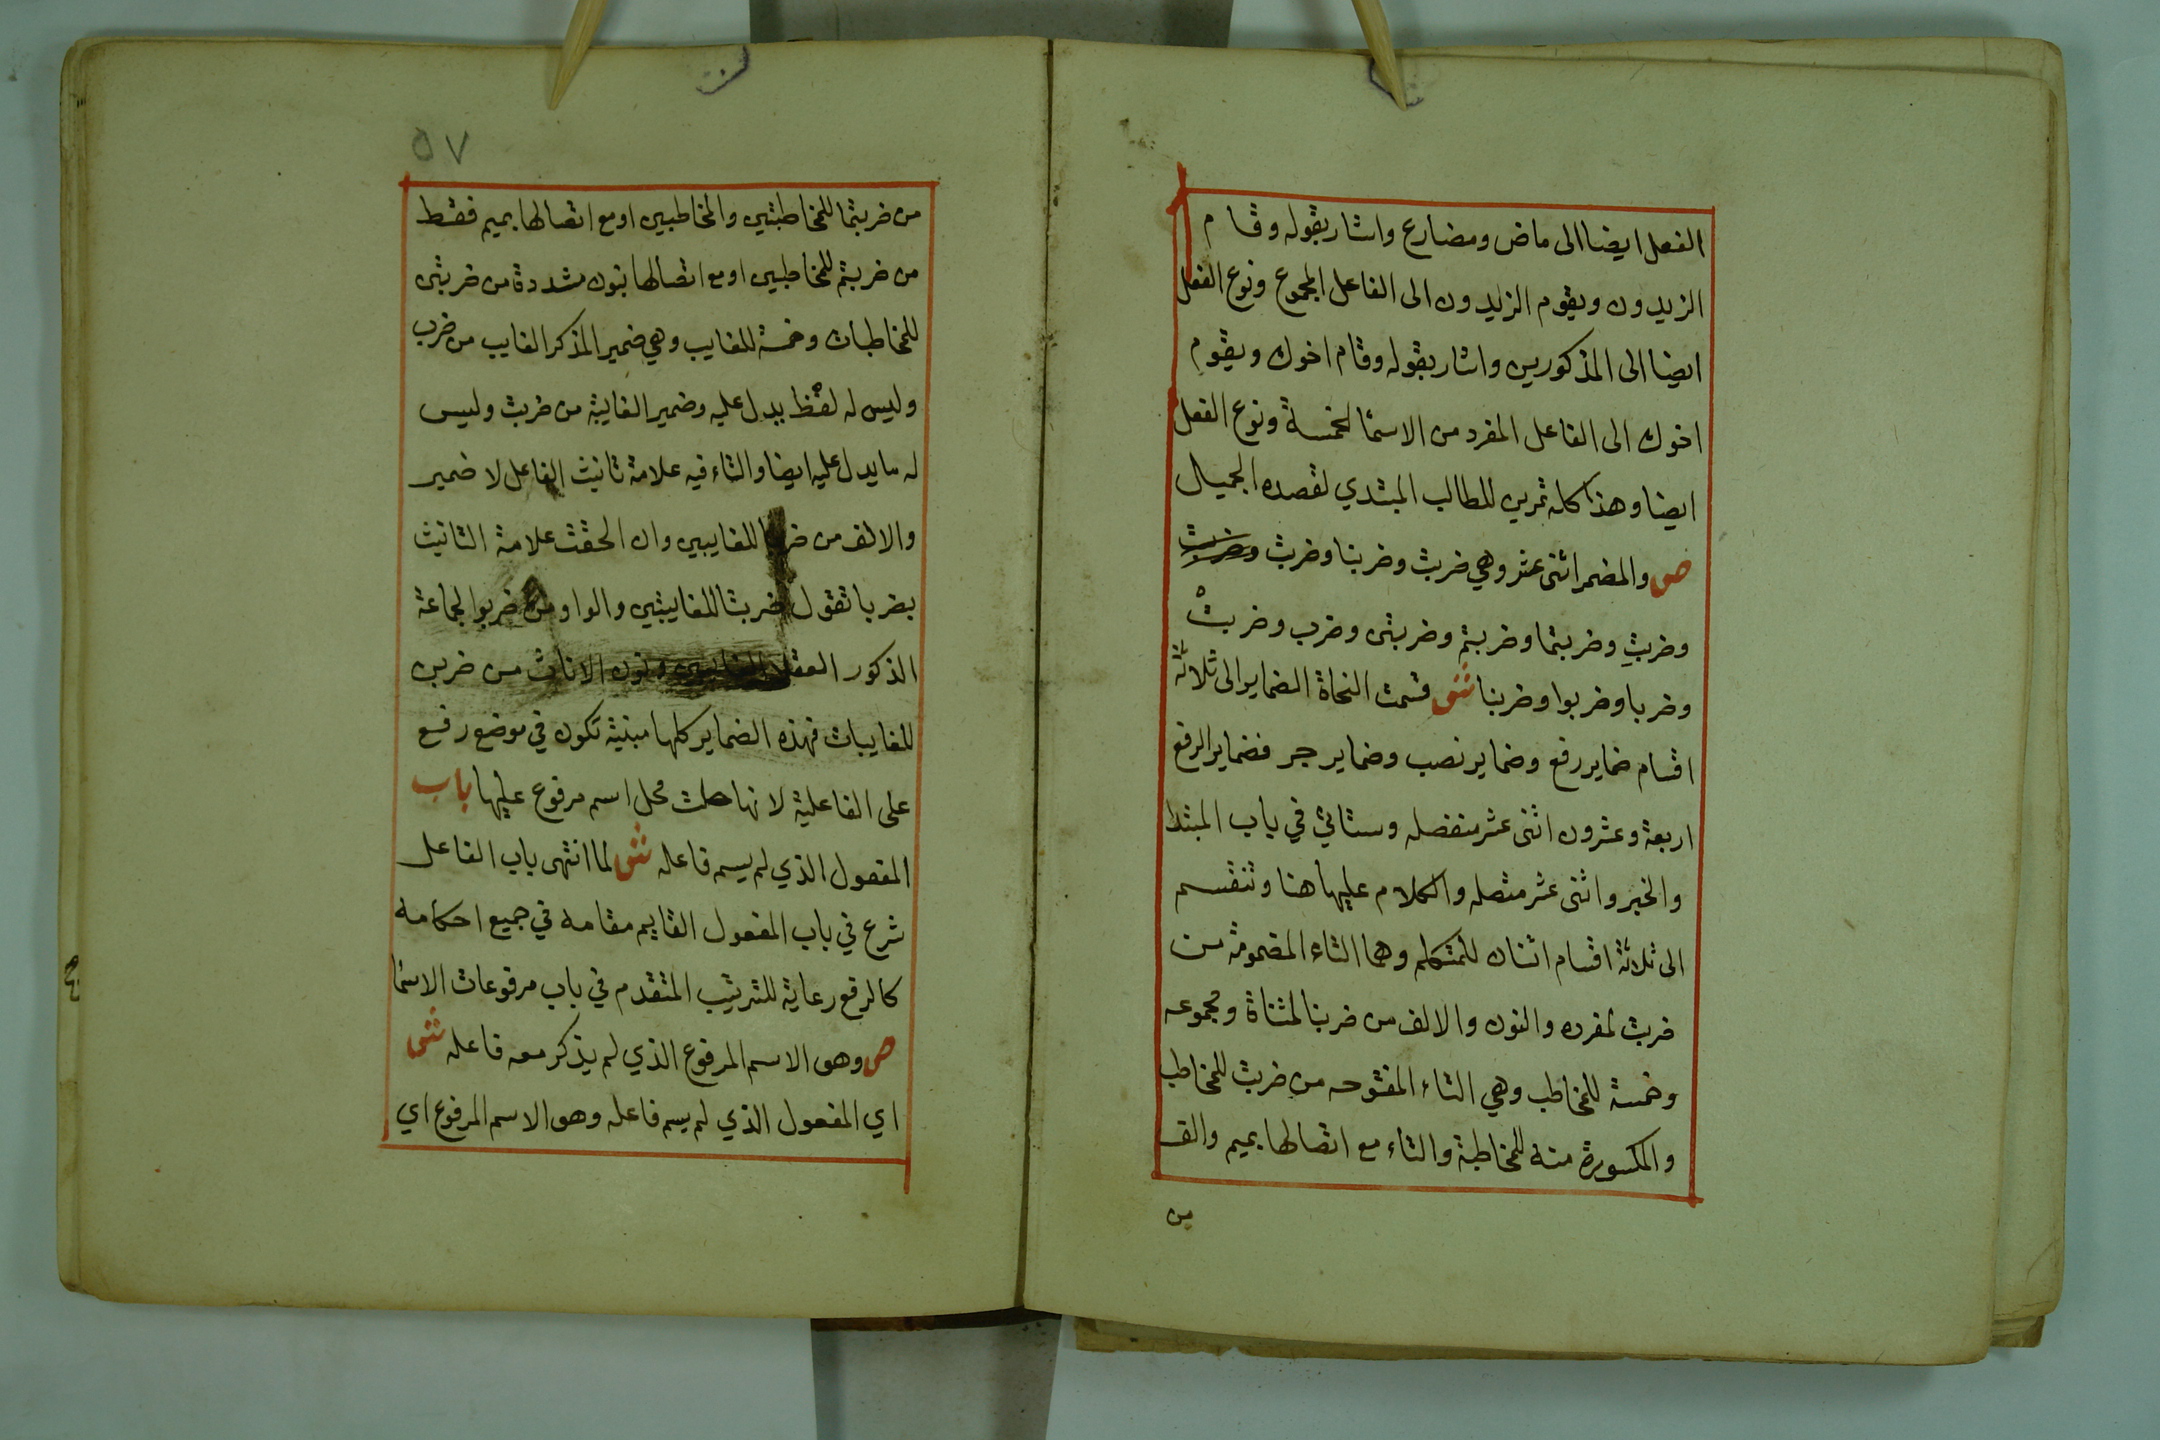 الفعل ايضا الى ماض ومضارع واشار بقوله وقام
الزيدون ويقوم الزيدون الى الفاعل المجموع ونوع الفعل
ايضا الى المذكورين واشار بقوله وقام اخوك ويقوم
اخوك الى الفاعل المفرد من الاسما الخمسة ونوع الفعل
ايضا وهذا كله تمرين للطالب المبتدي لقصده الجميل
ص والمضمر اثنى عشر وهي ضربت وضربنا وضربت وضربت
وضربتِ وضربتما وضربتم وضربتن وضرب وضربتْ
وضربا وضربوا وضربنا ش قسمت النحاة الضماير الى ثلاثة
اقسام ضماير رفع وضماير نصب وضماير جر فضماير الرفع
اربعة وعشرون اثنى عشر منفصله وستاتي في باب المبتدا
والخبر واثنى عشر متصله والكلام عليها هنا وتنقسم
الى ثلاثة اقسام اثنان للمتكلم وهما التاء المضمومة من
ضربت لمفرده والنون والالف من ضربنا لمثناة ومجموعه
وخمسة للمخاطب وهي التاء المفتوحه من ضربت للمخاطب
والمكسورة منه للمخاطبة والتاء مع اتصالها بميم والف
من
٥٧
من ضربتما للمخاطبتين والمخاطبين او مع اتصالها بميم فقط
من ضربتم للمخاطبين او مع اتصالها بنون مشددة من ضربتن
للمخاطبات وخمسة للغايب وهي ضمير المذكر الغايب من ضرب
وليس له لفظ يدل عليه وضمير الغايبة من ضربت وليس
له ما يدل عليه ايضا والتاء فيه علامة تانيث الفاعل لا ضمير
والالف من ضربا للغايبين وان الحقت علامة التانيث
بضربا تقول ضربتا للغايبتين والواو من ضربوا لجماعة
الذكور العقلا الغايبين ونون الاناث من ضربن
للغايبات فهذه الضماير كلها مبنية تكون في موضع رفع
على الفاعلية لانها حلت محل اسم مرفوع عليها باب
المفعول الذي لم يسم فاعله ش لما انتهى باب الفاعل
شرع في باب المفعول القايم مقامه في جميع احكامه
كالرفع رعاية للترتيب المتقدم في باب مرفوعات الاسما
ص وهو الاسم المرفوع الذي لم يذكر معه فاعله ش
اي المفعول الذي لم يسم فاعله وهو الاسم المرفوع اي